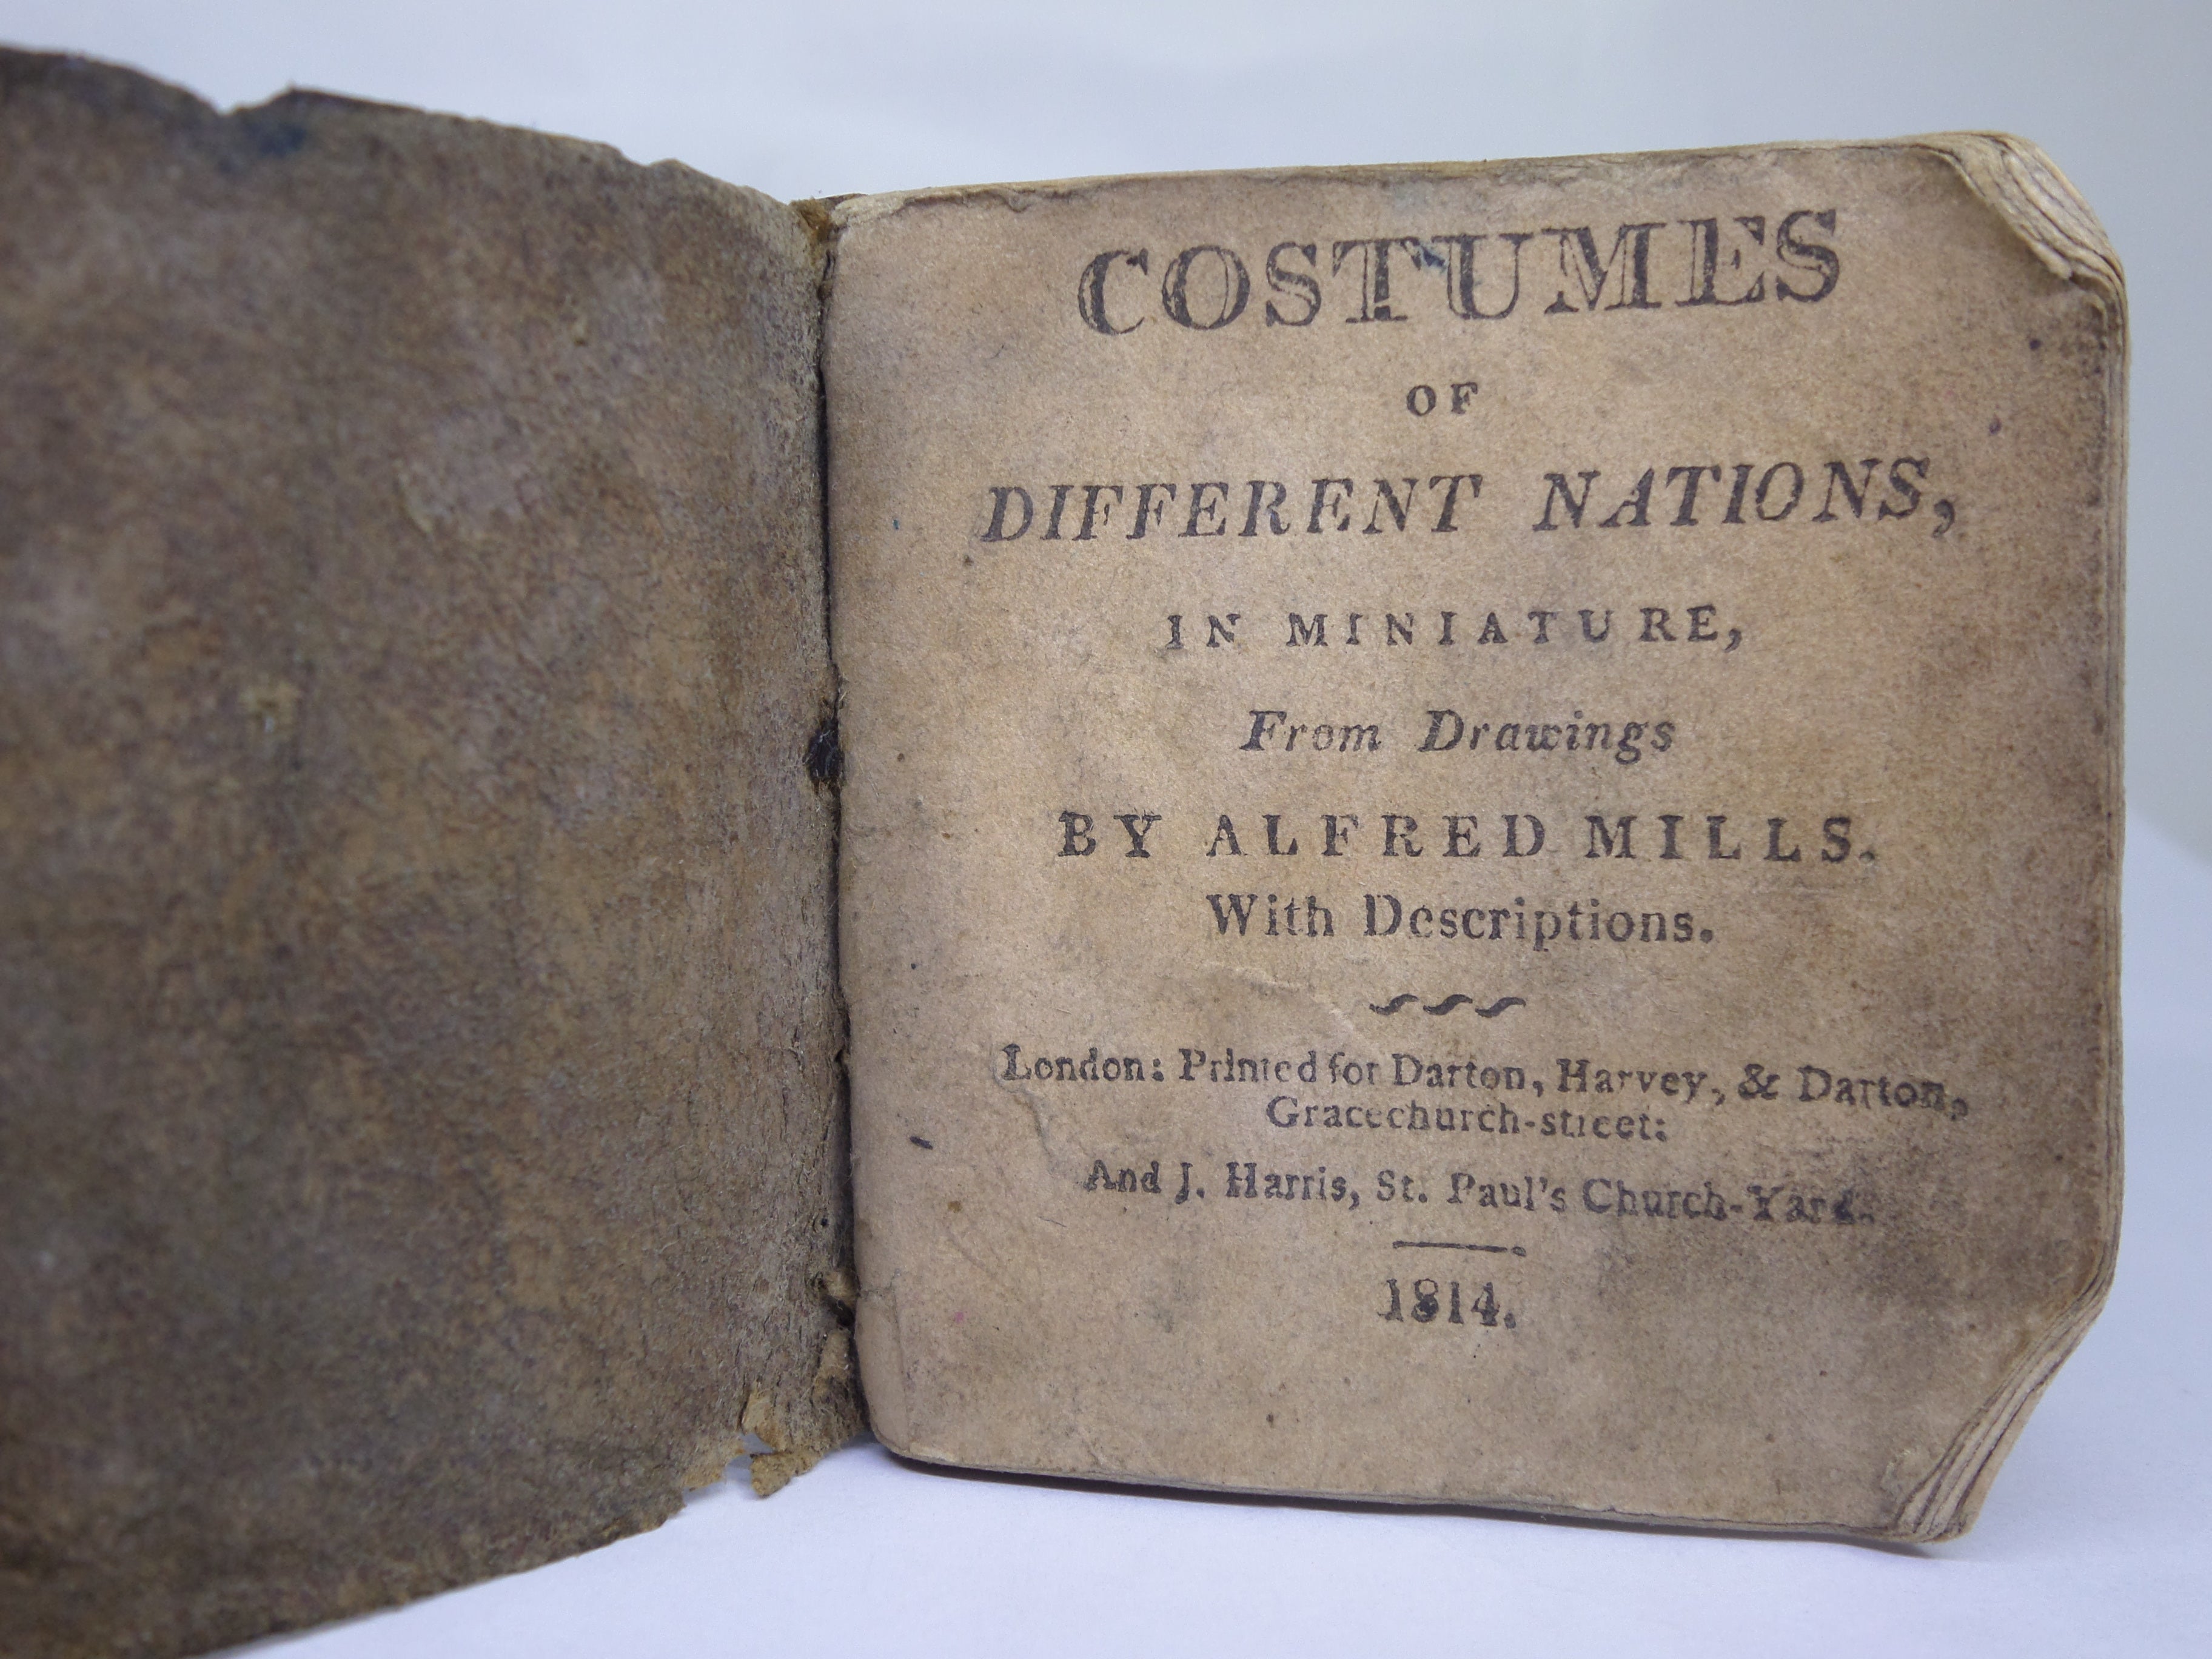 COSTUMES
OF
DIFFERENT NATIONS,
IN MINIATURE,
From Drawings
BY ALFRED MILLS.
With Descriptions.
London: Printed for Darton, Harvey, & Darton,
Gracechurch-street:
And J. Harris, St. Paul's Church-Yard.
1814.